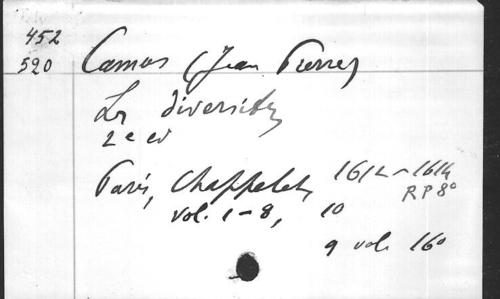 452
520
Camus (Jean Pierre)
Les diversitez
2e ed
Paris, Chappelet, 1612-1614
RP 8°
vol. 1-8, 10
9 vol. 16°